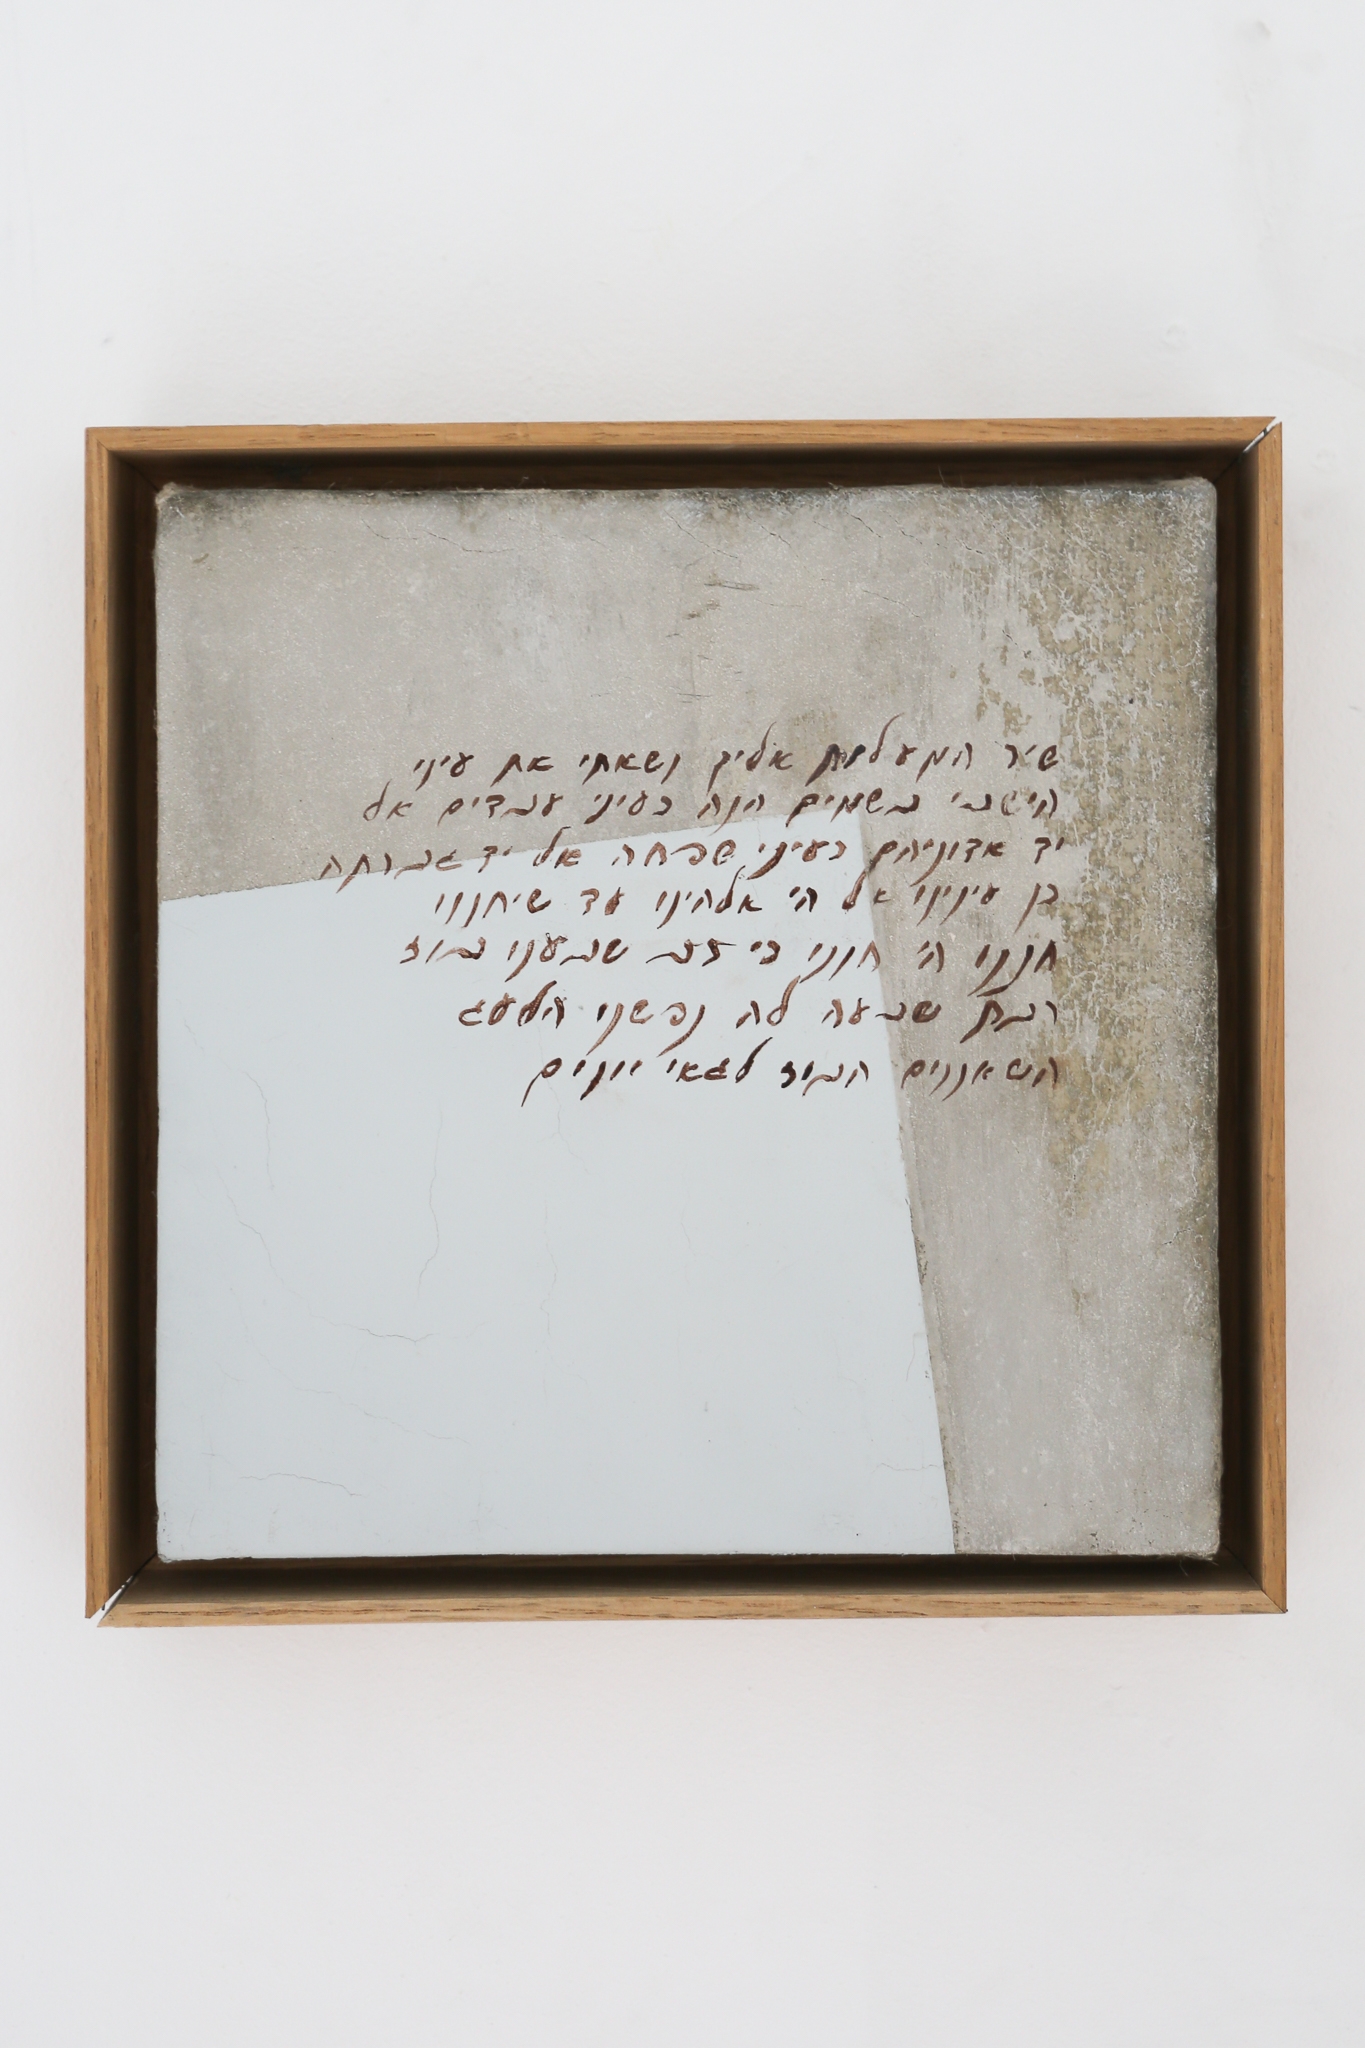 שיר המעלות אליך נשאתי את עיני
הישבי בשמים הנה כעיני עבדים אל
יד אדוניהם כעיני שפחה אל יד גברתה
כן עינינו אל הי אלהינו עד שיחננו
חננו ה' חננו כי רב שבענו בוז
רבת שבעה לה נפשנו הלעג
השאננים הבוז לגאי יונים